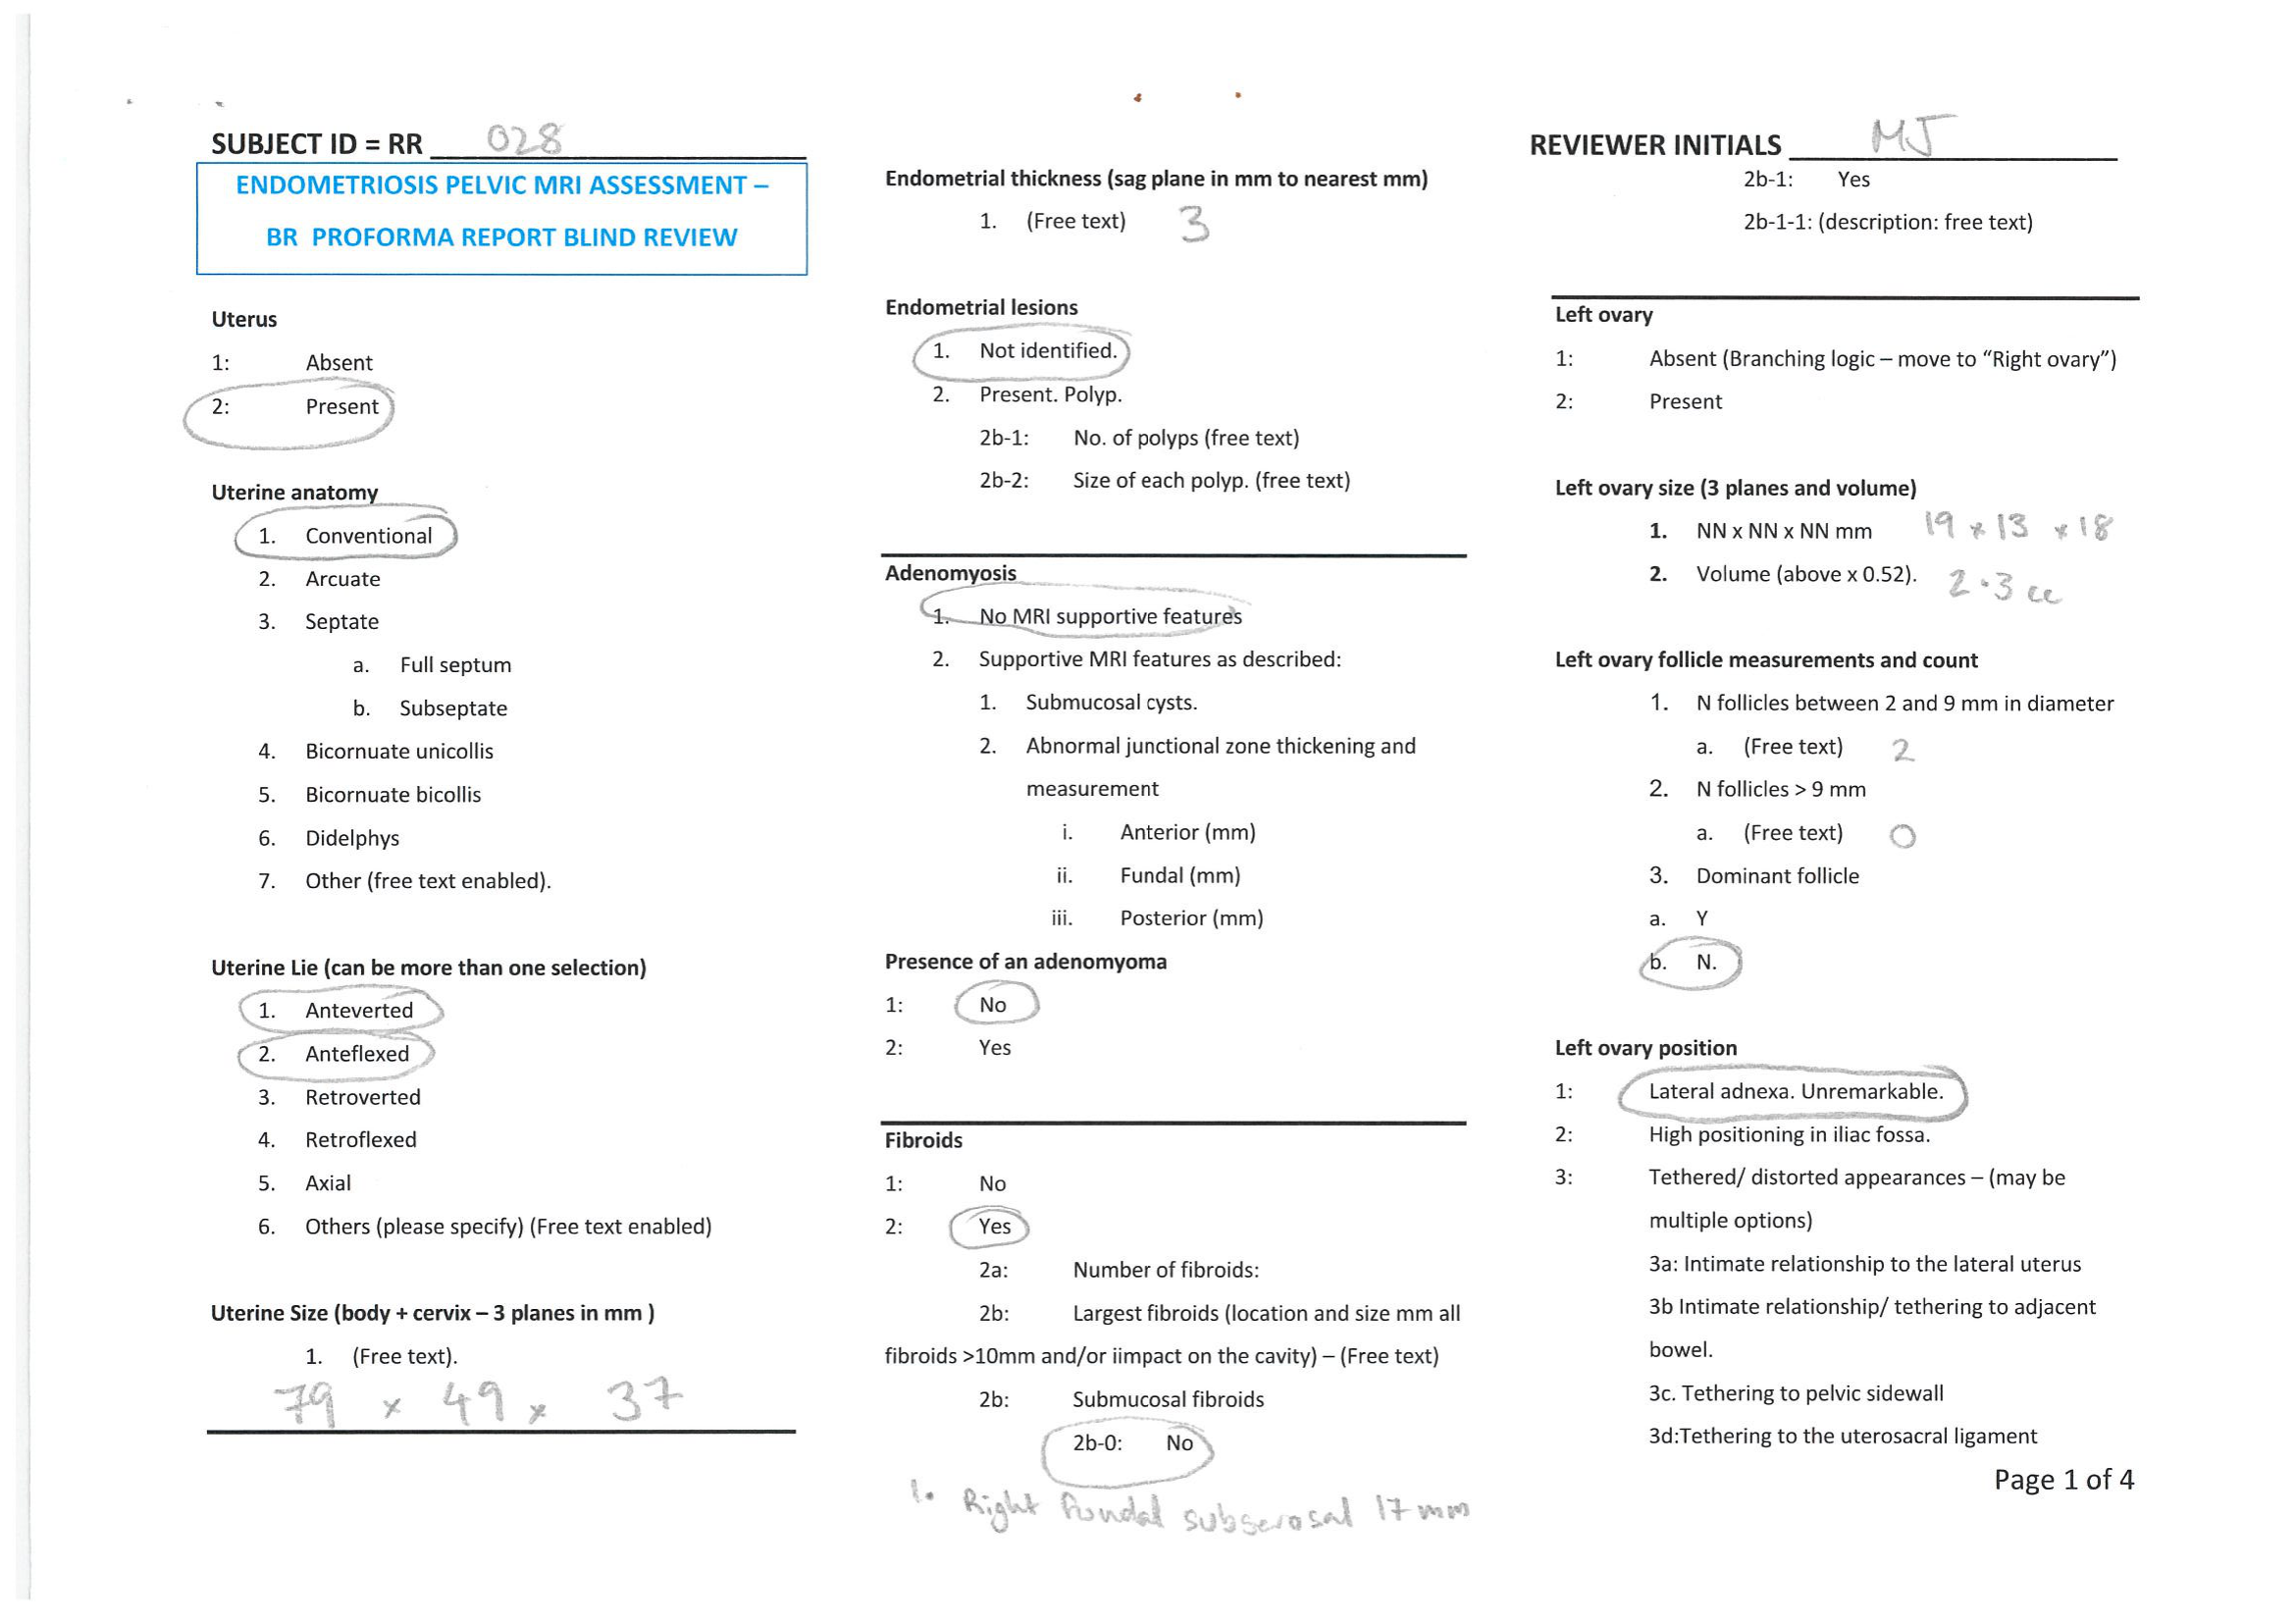 SUBJECT ID = RR 028
ENDOMETRIOSIS PELVIC MRI ASSESSMENT –
BR PROFORMA REPORT BLIND REVIEW
Uterus
1: Absent
2: Present
Uterine anatomy
1. Conventional
2. Arcuate
3. Septate
a. Full septum
b. Subseptate
4. Bicornuate unicollis
5. Bicornuate bicollis
6. Didelphys
7. Other (free text enabled).
Uterine Lie (can be more than one selection)
1. Anteverted
2. Anteflexed
3. Retroverted
4. Retroflexed
5. Axial
6. Others (please specify) (Free text enabled)
Uterine Size (body + cervix – 3 planes in mm )
1. (Free text).
79 x 49 x 37
Endometrial thickness (sag plane in mm to nearest mm)
1. (Free text) 3
Endometrial lesions
1. Not identified.
2. Present. Polyp.
2b-1: No. of polyps (free text)
2b-2: Size of each polyp. (free text)
Adenomyosis
1. No MRI supportive features
2. Supportive MRI features as described:
1. Submucosal cysts.
2. Abnormal junctional zone thickening and
measurement
i. Anterior (mm)
ii. Fundal (mm)
iii. Posterior (mm)
Presence of an adenomyoma
1: No
2: Yes
Fibroids
1: No
2: Yes
2a: Number of fibroids:
2b: Largest fibroids (location and size mm all
fibroids >10mm and/or iimpact on the cavity) – (Free text)
2b: Submucosal fibroids
2b-0: No
1. Right fundal subserosal 17 mm
REVIEWER INITIALS MJ
2b-1: Yes
2b-1-1: (description: free text)
Left ovary
1: Absent (Branching logic – move to “Right ovary”)
2: Present
Left ovary size (3 planes and volume)
1. NN x NN x NN mm 19 x 13 x 18
2. Volume (above x 0.52). 2.3 cc
Left ovary follicle measurements and count
1. N follicles between 2 and 9 mm in diameter
a. (Free text) 2
2. N follicles > 9 mm
a. (Free text) 0
3. Dominant follicle
a. Y
b. N.
Left ovary position
1: Lateral adnexa. Unremarkable.
2: High positioning in iliac fossa.
3: Tethered/ distorted appearances – (may be
multiple options)
3a: Intimate relationship to the lateral uterus
3b Intimate relationship/ tethering to adjacent
bowel.
3c. Tethering to pelvic sidewall
3d:Tethering to the uterosacral ligament
Page 1 of 4